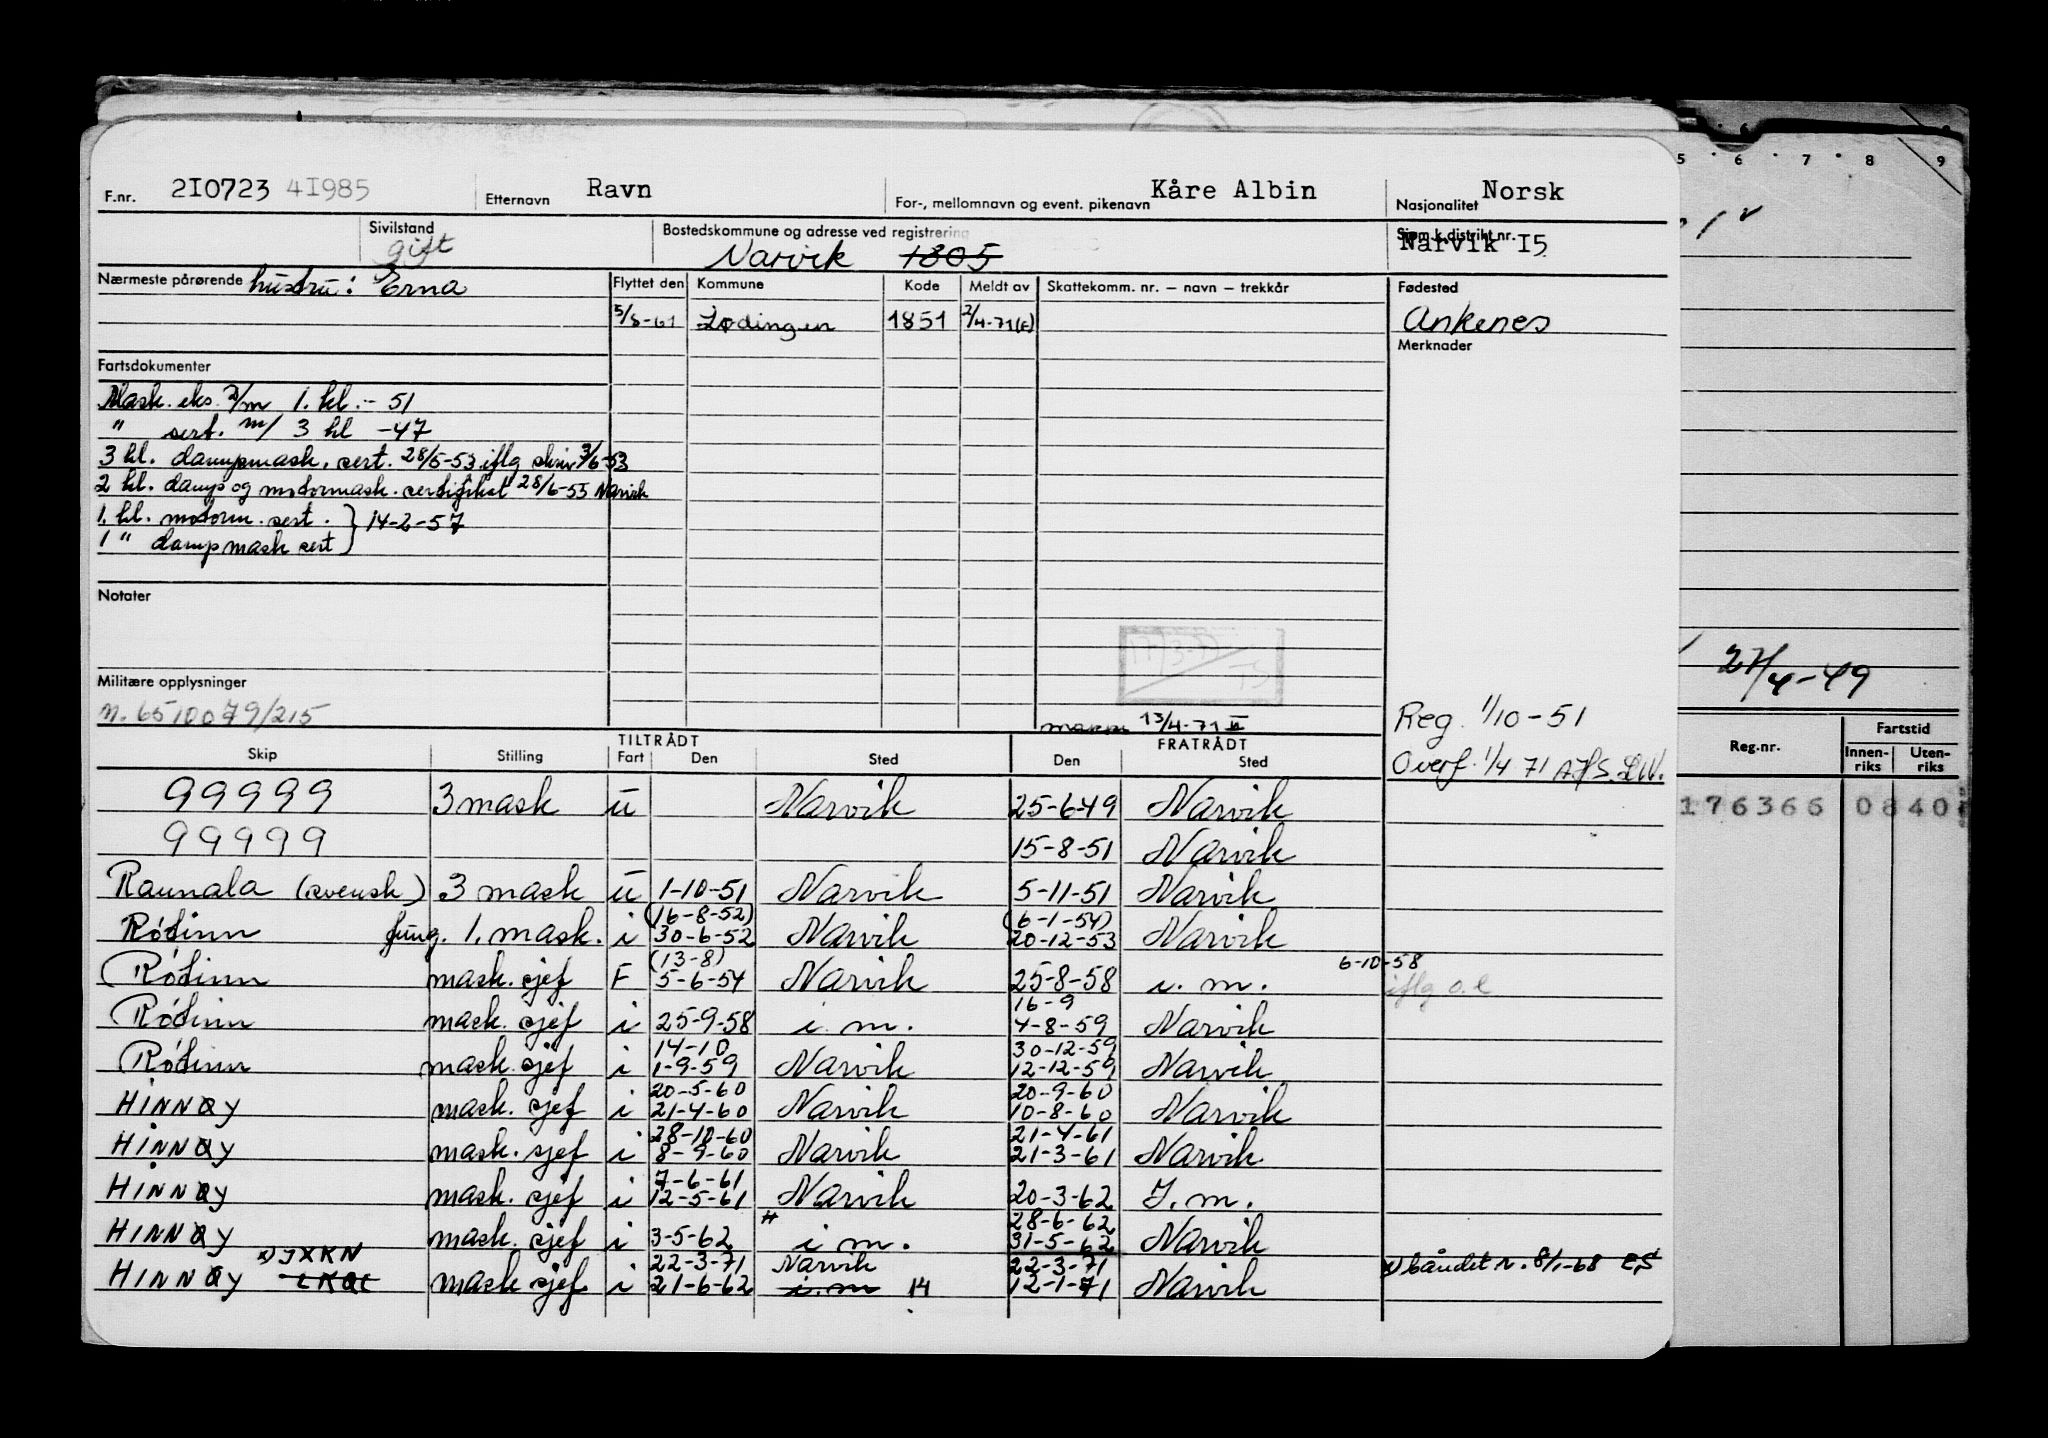 F.nr. 2I0723 4I985 Etternavn Ravn For-, mellomnavn og event. pikenavn Kåre Albin Nasjonalitet Norsk
Sivilstand gift Bostedskommune og adresse ved registrering Narvik 1805 Sjøm.k.distrikt nr. Narvik I5
Nærmeste pårørende hustru: Erna Flyttet den Kommune Kode Meldt av Skattekomm. nr. – navn – trekkår Fødested
5/8-61 Lødingen 1851 2/4-71(E) Ankenes
Merknader
Fartsdokumenter
Mask. eks. D/m 1. kl. - 51
" sert. m/ 3 kl -47
3 kl. dampmask. sert. 28/5-53 iflg skriv 3/6-53
2 kl. damp og motormask. sertifikat 28/6-55 Narvik
1. kl. motorm. sert. } 14-2-57
1 " dampmask sert
Notater
17/3-71
TS
Militære opplysninger
n. 6510079/215
13/4-71
Reg. 1/10-51
Overf. 1/4 71
Skip Stilling TILTRÅDT Fart Den Sted FRATRÅDT Den Sted
99999 3 mask u Narvik 25-6-49 Narvik
99999 15-8-51 Narvik
Raunala (svensk) 3 mask u 1-10-51 Narvik 5-11-51 Narvik
(16-8-52) (6-1-54)
Rótinn fung. 1. mask. i 30-6-52 Narvik 20-12-53 Narvik
(13-8) 6-10-58
Rótinn mask. sjef F 5-6-54 Narvik 25-8-58 i. m. iflg o.l
16-9
Rótinn mask. sjef i 25-9-58 i. m. 4-8-59 Narvik
14-10 30-12-59
Rótinn mask. sjef i 1-9-59 Narvik 12-12-59 Narvik
20-5-60 20-9-60
HINNØY mask. sjef i 21-4-60 Narvik 10-8-60 Narvik
28-10-60 21-4-61
HINNØY mask. sjef i 8-9-60 Narvik 21-3-61 Narvik
7-6-61
HINNØY mask. sjef i 12-5-61 Narvik 20-3-62 I. m.
28-6-62
HINNØY mask. sjef i 3-5-62 i m. 31-5-62 Narvik
x) JXKN 22-3-71 Narvik 22-3-71
HINNØY mask sjef i 21-6-62 i. m 14 12-1-71 Narvik x) båndet n. 8/1-68 ES
5 6 7 8 9
27/4-49
Reg.nr. Fartstid
Innen-riks Uten-riks
176366 0840